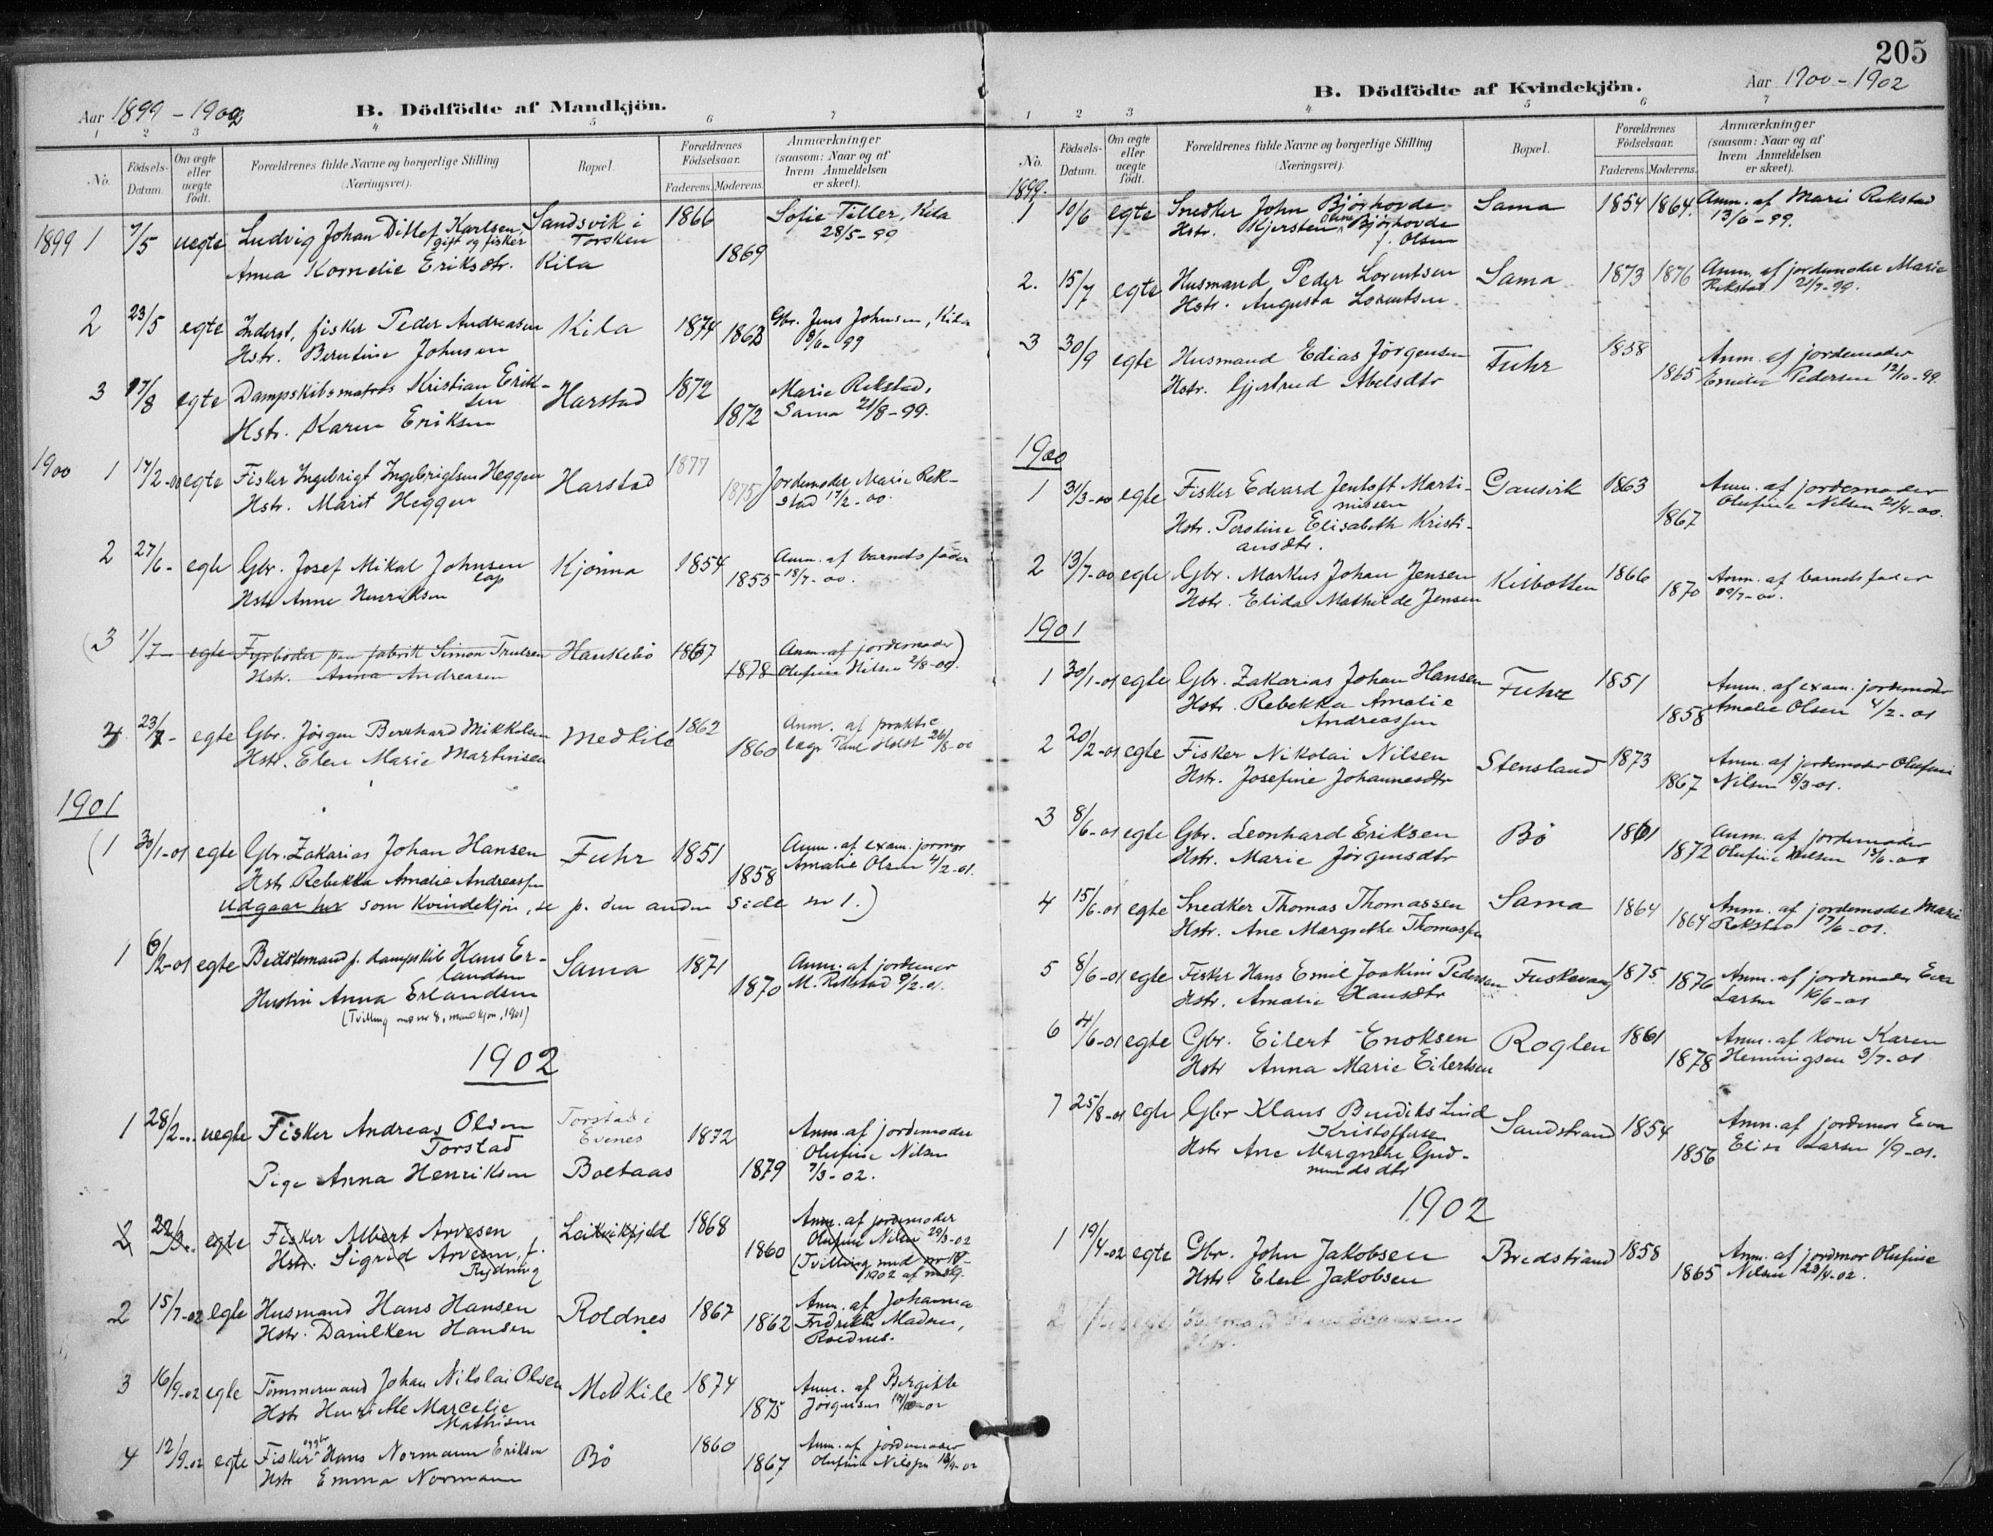 Aar 1899 - 1902
B. Dödfödte af Mandkjön.
1 2 3 4 5 6 7
No.
Födsels-
Datum.
Om ægte
eller
uægte
født.
Forældrenes fulde Navne og borgerlige Stilling
(Næringsvei).
Bopæl.
Forældrenes
Födselsaar.
Faderens. Moderens.
Anmærkninger
(saasom: Naar og af
hvem Anmeldelsen
er skeet).
1899 1 7/5 uegte Ludvig Johan Ditlef Karlsen, Sandsvik i 1866 Sofie Tiller, Kila
gift og fisker Torsken 28/5-99
Anna Kornelie Eriksdtr. Kila 1869
2 23/5 egte Inderst, fisker Peder Andreasen Kila 1874 1863 Gbr. Jens Johnsen, Kila
Hstr. Berntine Johnsen 8/6-99
3 17/8 egte Dampskibsmatros Kristian Erik- Harstad 1872 Marie Rekstad,
sen
Hstr. Karen Eriksen 1872 Sama 21/8-99.
1900 1 17/2-00 egte Fisker Ingebrigt Ingebrigtsen Heggen Harstad 1877 Jordemoder Marie Rek-
Hstr. Marit Heggen 1875 stad 17/2-00.
2 27/6- egte Gbr. Josef Mikal Johnsen Kjønna 1854 Anm. af barnets fader
lap
Hstr Anne Henriksen 1855 18/7-00.
(3 1/7- egte Fyrbøder paa fabrik Simon Truelsen Hankebø 1867 Anm. af jordemoder)
Hstr. Anna Andreasen 1878 Olufine Nilsen 2/8-00.
3 23/7- egte Gbr. Jørgen Bernhard Mikkelsen Medkile 1862 Anm. af prakt.
Hstr. Elen Marie Martinsen 1860 læge Paul Holst 26/8-00
1901
(1 30/1-01 egte Gbr. Zakarias Johan Hansen Fuhr 1851 Anm. af exam. jormor
Hstr Rebekka Amalie Andreassen 1858 Amalie Olsen 4/2-01.
udgaar her som kvindekjøn, se p. den anden side nr 1.)
1 6/2-01 egte Bedstemand p. dampskib Hans Er- Sama 1871 Anm. af jordemor
landsen
Hustru Anna Erlandsen 1870 M. Rekstad 9/2-01.
(Tvilling med nr 8, mandkjøn, 1901)
1902
1 28/2-.. uegte Fisker Andreas Olsen Torstad i 1872 Anm. af jordemoder
Torstad Evenes Olufine Nilsen
Pige Anna Henriksen Boltaas 1879 7/3-02.
2 22/3.. egte Fisker Albert Arvesen Leikvikfjeld 1868 Anm. af jordemoder
Hstr. Sigrid Arvesen, f. 1860 Olufine Nilsen 29/3-02
Rydning (Tvilling med nr
1902 af mdkj.
2 15/7-02 egte Husmand Hans Hansen Roldnes 1867 Anm. af Johanna
Hstr. Danilken Hansen 1862 Fredrikke Madsen,
Roldnes.
3 16/9-02 egte Tømmermand Johan Nikolai Olsen Medkile 1874 Anm. af Bergitte
Hstr Henriette Marcelie 1875 Jørgensen
Mathisen
4 12/9-02 egte Fisker og gbr Hans Normann Eriksen Bø 1860 Anm. af jordemoder
Hstr Emma Normann 1867 Olufine Nilsen
205
Aar 1900 - 1902
B. Dödfödte af Kvindekjön.
1 2 3 4 5 6 7
No.
Födsels-
Datum.
Om ægte
eller
uægte
födt.
Forældrenes fulde Navne og borgerlige Stilling
(Næringsvei).
Bopæl.
Forældrenes
Födselsaar.
Faderens. Moderens.
Anmærkninger
(saasom: Naar og af
hvem Anmeldelsen
er skeet).
1899.
1 10/6 egte Snedker John Bjørhovde Sama 1854 1864. Anm. af Marie Rekstad
Hstr. Kjersten Oline Bjørhovde 13/6-99.
f. Olsen
2. 15/7 egte Husmand Peder Lorentsen Sama 1873 1876 Anm. af jordemoder Marie
Hstr. Augusta Lorentsen Rekstad 21/7-99.
3 30/9 egte Husmand Edias Jørgensen Fuhr 1858 Anm. af jordemoder
Hstr. Gjertrud Abelsdtr 1865 Emilie Pedersen 12/10-99.
1900
1 31/3-00 egte Fisker Edvard Jentoft Marti- Gausvik 1863 Anm. af jordemoder
nussen Olufine Nilsen 21/4-00.
Hstr. Peroline Elisabeth Kristi- 1867
ansdtr.
2 13/7-00 egte Gbr. Markus Johan Jensen Kilbotten 1866 Anm. af barnets fader
Hstr. Elida Mathilde Jensen 1870 29/7-00.
1901
1 30/1-01 egte Gbr. Zakarias Johan Hansen Fuhr 1851 Anm. af exam. jordemoder
Hstr. Rebekka Amalie 1858 Amalie Olsen 4/2-01
Andreassen
2 20/2-01 egte Fisker Nikolai Nilsen Stensland 1873 Anm. af jordemoder Olufine
Hstr. Josefine Johannesdtr 1867 Nilsen 8/3-01.
3 8/6-01 egte Gbr. Leonhard Eriksen Bø 1861 Anm. af jordemoder
Hstr. Marie Jørgensdtr 1872 Olufine Nilsen 13/6-01
4 15/6-01 egte Snedker Thomas Thomassen Sama 1864 Anm. af jordemoder Marie
Hstr. Ane Margrethe Thomassen 1864 Rekstad 17/6-01.
5 8/6-01 egte Fisker Hans Emil Joakim Pedersen Fuskevaag 1875. 1876 Anm. af jordemoder Eva
Hstr. Amalie Hansdtr Larsen 16/6-01
6 4/6-01 egte Gbr. Eilert Enoksen Roglen 1861 Anm. af kone Karen
Hstr Anna Marie Eilertsen 1878 Henningsen 3/7-01
7 25/8-01 egte Gbr Klaus Bendiks Lind Sandstrand 1854 Anm. af jordemor Eva
Kristoffersen
Hstr Ane Margrethe Gud- 1856 Elise Larsen 1/9-01.
mundsdtr
1902
1 19/4-02 egte Gbr. John Jakobsen Bredstrand 1858 Anm. af jordmor Olufine
Hstr. Elen Jakobsen 1865 Nilsen 23/4-02.
2 egte Husmand Hans Hansen
Hstr.